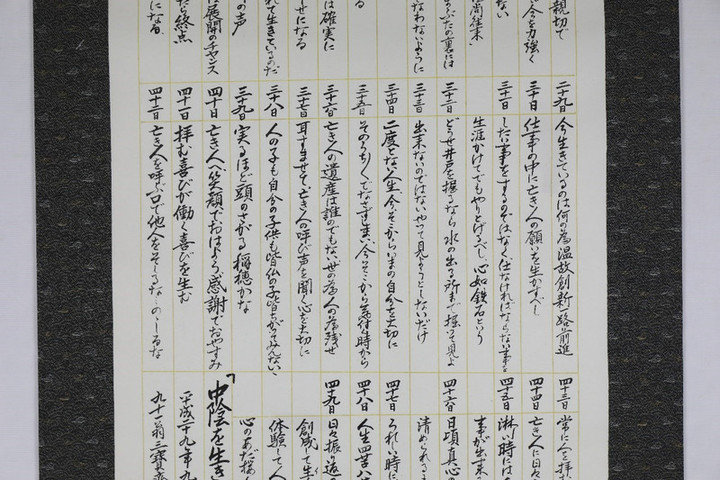 親切で
今を力強く
ない
うぶたの裏には
なわないように
る
は確実に
せになる
れて生きているのだ
の声
は展開のチャンス
たら終点
になる
二十九日 今生きているのは何の為温故創新一路前進
三十日 仕事の中に亡き人の願いを生かすべし
三十一日 したい事をするのではなく仕なければならない事を
生涯かけてでもやりとげるべし心如鉄石という
三十二日 どうせ井戸を掘るなら水の出る所まで掘って見よ
三十三日 出来ないのではないやって見ようとしないだけ
三十四日 二度とない人生今そからいまの自分を大切に
三十五日 そのうちくでなさすまい今そこから気付た時から
三十六日 亡き人の遺産は誰のでもない世の為人の為残せ
三十七日 耳すませて亡き人の呼び声を聞く心を大切に
三十八日 人の子も自分の子供も皆仏の子皆ちがってみんないい
三十九日 実るほど頭のさがる稲穂かな
四十日 亡き人へ笑顔でおはよう感謝でおやすみ
四十一日 拝む喜びが働く喜びを生む
四十二日 亡き人を呼ぶ口で他人をそしるなののしるな
四十三日 常に人を拝む
四十四日 亡き人に日々
四十五日 淋い時には
事が出来る
四十六日 日頃真心の
清められ
四十七日 うれしい時に
四十八日 人生四苦八
四十九日 日々振り返
創減して生
体験して人
心のあだ桜
「中陰を生き
平成二十九年九
九十一翁三寶